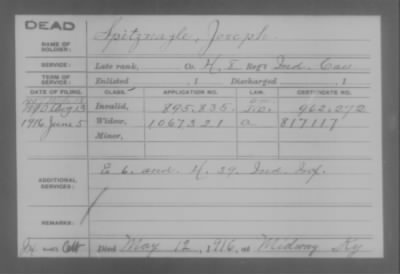 DEAD
NAME OF SOLDIER: Spitznagle, Joseph.
SERVICE: Late rank, Co. H, 8, Reg't Ind. Cav.
TERM OF SERVICE: Enlisted , 1 Discharged , 1
DATE OF FILING. CLASS. APPLICATION NO. LAW. CERTIFICATE NO.
Aug 13 Invalid, 895.835 962.272
1916 June 5 Widow, 1067321 a. 817117
Minor,
ADDITIONAL SERVICES: E 6. and K. 39. Ind. Inf.
REMARKS:
Died May 12, 1916, at Midway Ky